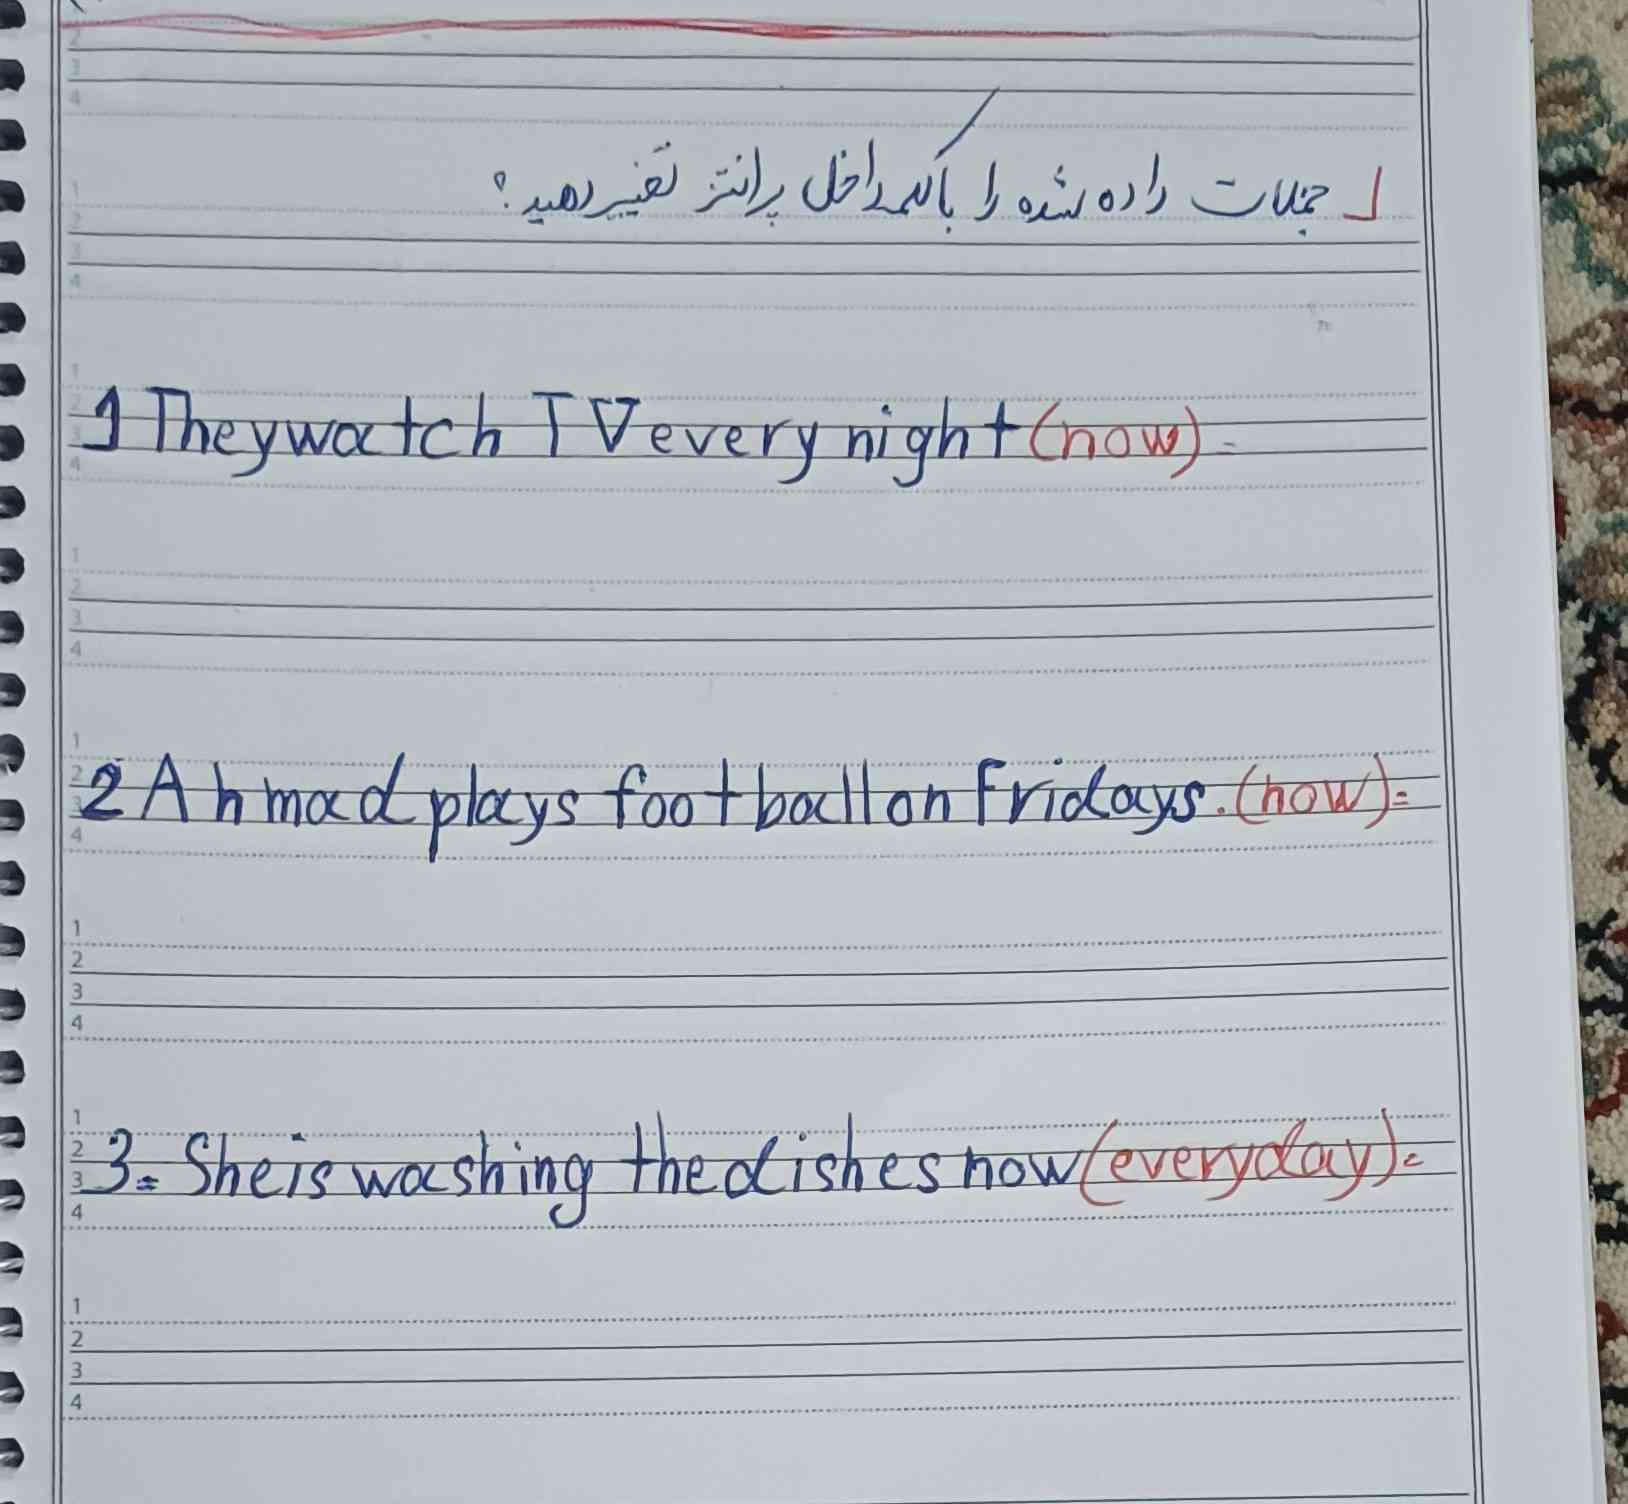 ۱ جملات داده شده را با کلمه داخل پرانتز تغییر دهید؟
1 They watch TV every night (now) =
2 Ahmad plays football on fridays. (now) =
3 = She is washing the dishes now (everyday) =